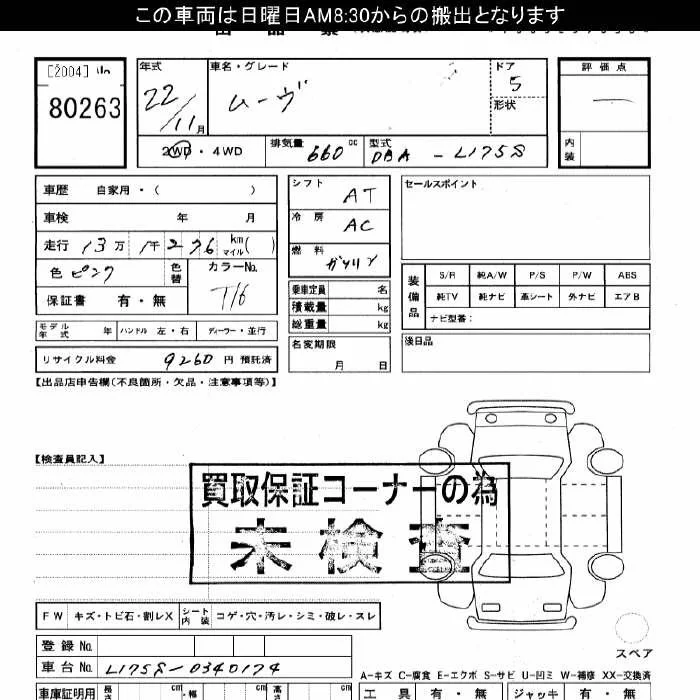 この車両は日曜日AM8:30からの搬出となります
[2004]
80263
年式 車名・グレード ドア 評価点
22/11月 ムーヴ 5 形状 一
2WD・4WD 排気量 660 cc 型式 DBA - L175S 内装
車歴 自家用・( ) シフト AT セールスポイント
車検 年 月 冷房 AC
走行 13万 1千 276 km マイル( ) 燃料 ガソリン
色 ピンク 色替 カラーNo. T16
装備品 S/R 純A/W P/S P/W ABS
乗車定員 名 純TV 純ナビ 革シート 外ナビ エアB
保証書 有・無 積載量 kg ナビ型番:
モデル年式 年 ハンドル 左・右 ディーラー・並行 総重量 kg 後日品
リサイクル料金 9260 円 預託済 名変期限 月 日
【出品店申告欄(不良箇所・欠品・注意事項等)】
【検査員記入】
買取保証コーナーの為
未検査
FW キズ・トビ石・割レX シート内装 コゲ・穴・汚レ・シミ・破レ・スレ
登録No.
スペア
車台No. L175S-0340174
A-キズ C-腐食 E-エクボ S-サビ U-凹ミ W-補修 XX-交換済
車庫証明用 長さ cm ・幅 cm 高さ cm 工具 有・無 ジャッキ 有・無